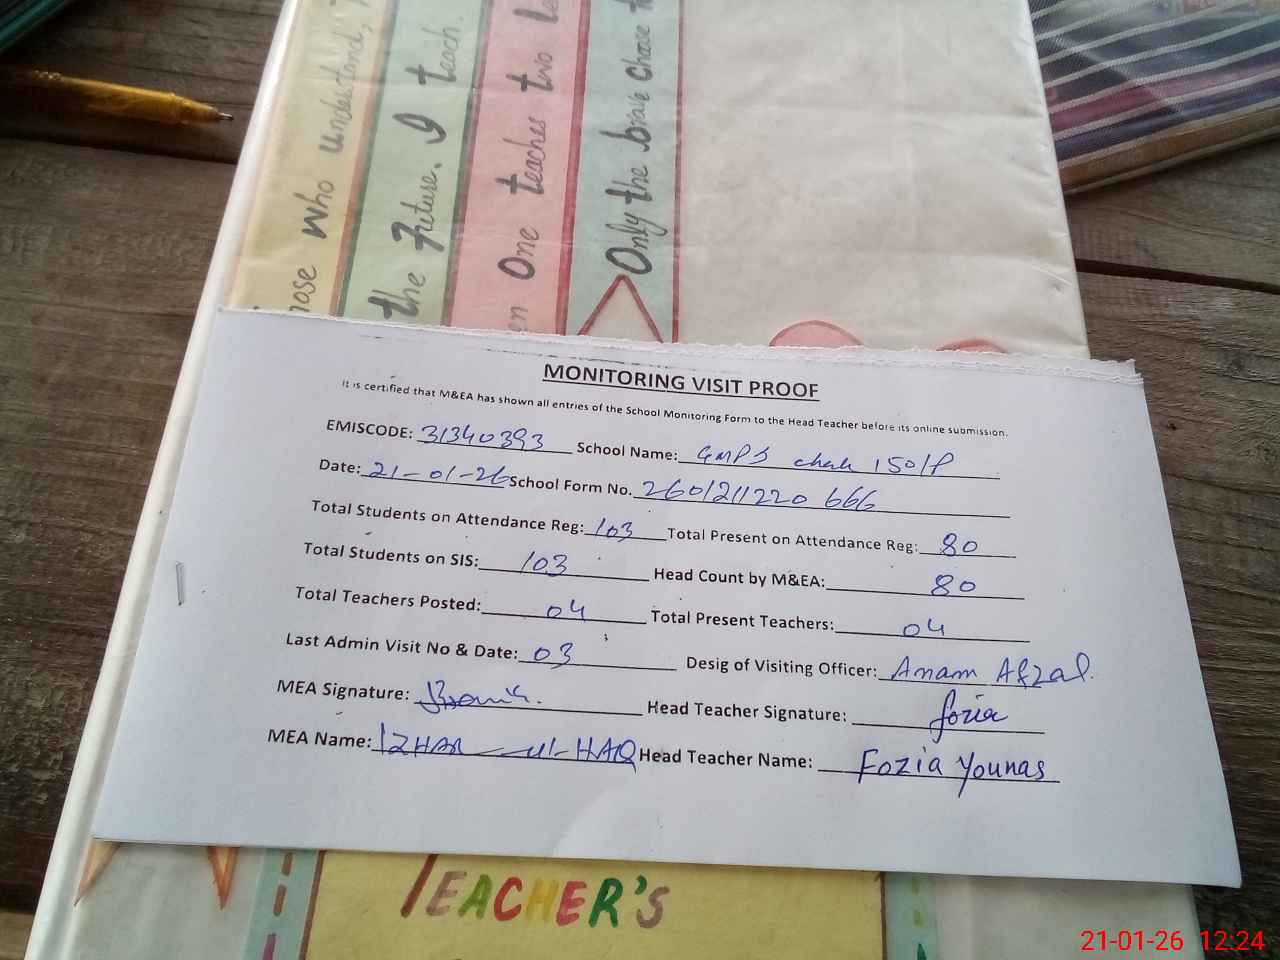 hose who understand,
the Future. I teach.
en One teaches two
Only the brave chose
MONITORING VISIT PROOF
It is certified that M&EA has shown all entries of the School Monitoring Form to the Head Teacher before its online submission.
EMISCODE: 31340393 School Name: GMPS chak 150/P
Date: 21-01-26 School Form No. 2601211220 666
Total Students on Attendance Reg: 103 Total Present on Attendance Reg: 80
Total Students on SIS: 103 Head Count by M&EA: 80
Total Teachers Posted: 04 Total Present Teachers: 04
Last Admin Visit No & Date: 03 Desig of Visiting Officer: Anam Afzal.
MEA Signature: Head Teacher Signature: fozia
MEA Name: IZHAR ul-HAQ Head Teacher Name: Fozia Younas
TEACHER'S
21-01-26 12:24